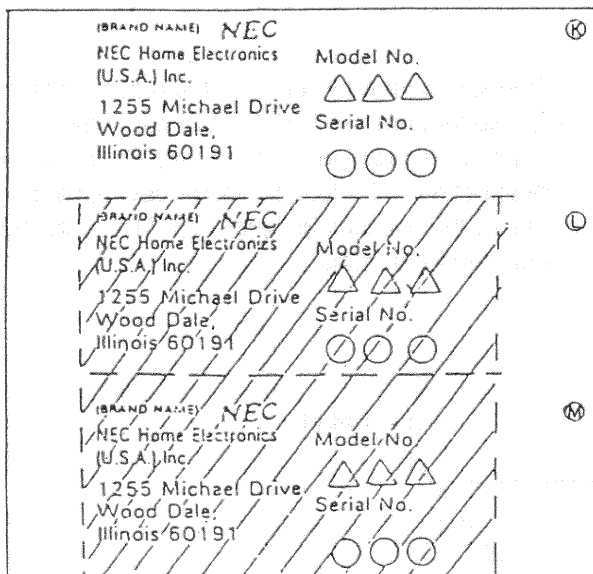 (BRAND NAME) NEC Ⓚ
NEC Home Electronics
(U.S.A.) Inc.
Model No.
△ △ △
1255 Michael Drive
Wood Dale,
Illinois 60191
Serial No.
○ ○ ○
(BRAND NAME) NEC Ⓛ
NEC Home Electronics
(U.S.A.) Inc.
Model No.
△ △ △
1255 Michael Drive
Wood Dale,
Illinois 60191
Serial No.
○ ○ ○
(BRAND NAME) NEC Ⓜ
NEC Home Electronics
(U.S.A.) Inc.
Model No.
△ △ △
1255 Michael Drive
Wood Dale,
Illinois 60191
Serial No.
○ ○ ○